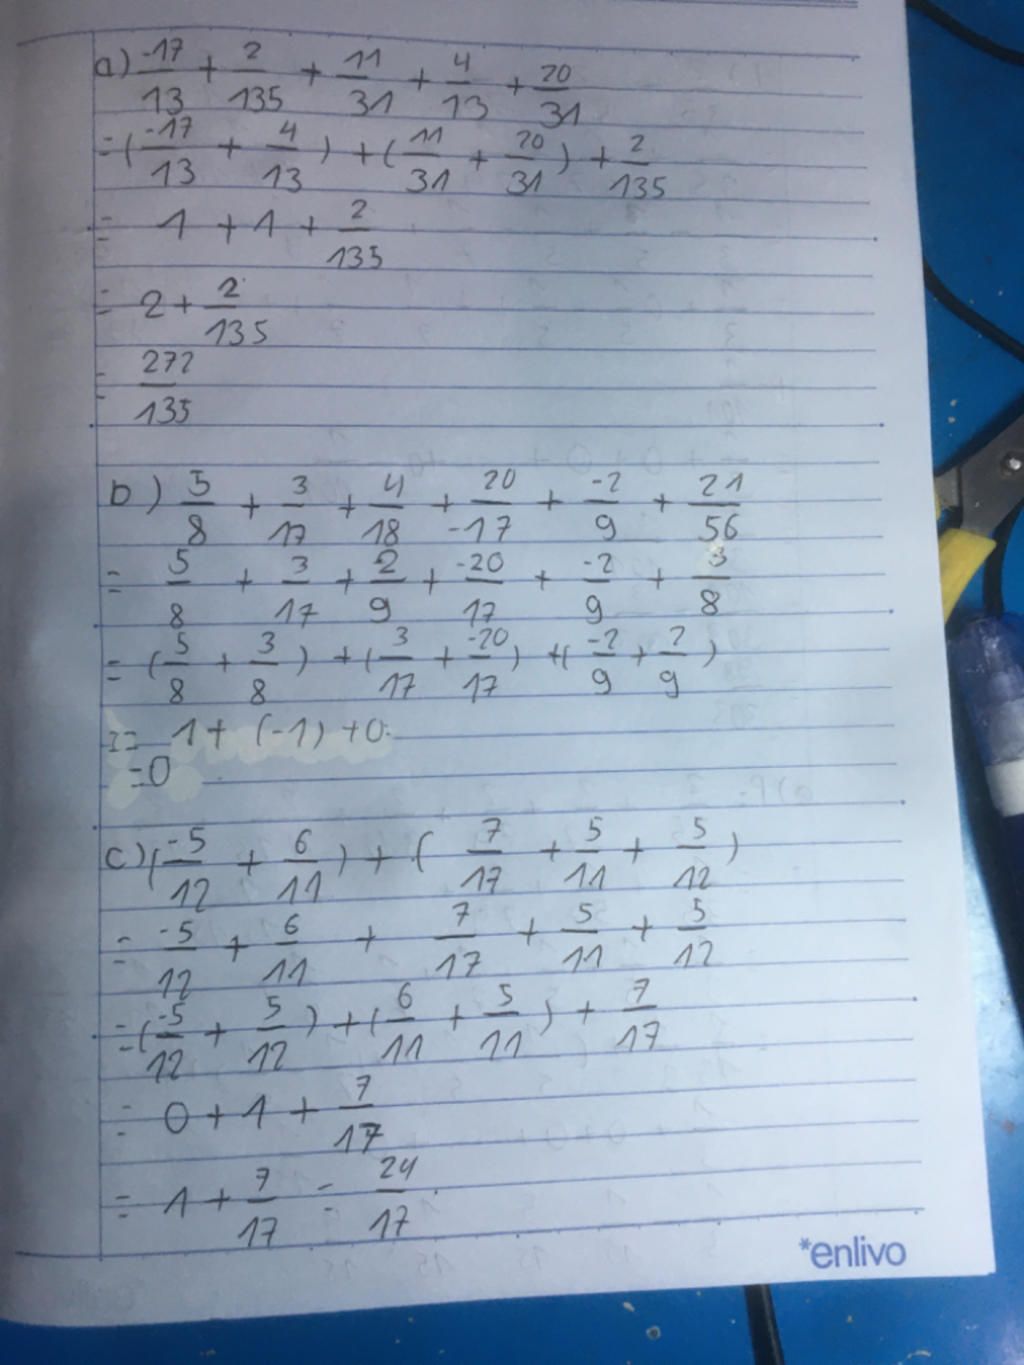 a) -17/13 + 2/135 + 11/31 + 4/13 + 20/31
= (-17/13 + 4/13) + (11/31 + 20/31) + 2/135
= 1 + 1 + 2/135
= 2 + 2/135
= 272/135
b) 5/8 + 3/17 + 4/18 + 20/-17 + -2/9 + 21/56
= 5/8 + 3/17 + 2/9 + -20/17 + -2/9 + 3/8
= (5/8 + 3/8) + (3/17 + -20/17) + (-2/9 + 2/9)
= 1 + (-1) + 0
= 0
c) (-5/12 + 6/11) + (7/17 + 5/11 + 5/12)
= -5/12 + 6/11 + 7/17 + 5/11 + 5/12
= (-5/12 + 5/12) + (6/11 + 5/11) + 7/17
= 0 + 1 + 7/17
= 1 + 7/17 = 24/17
*enlivo